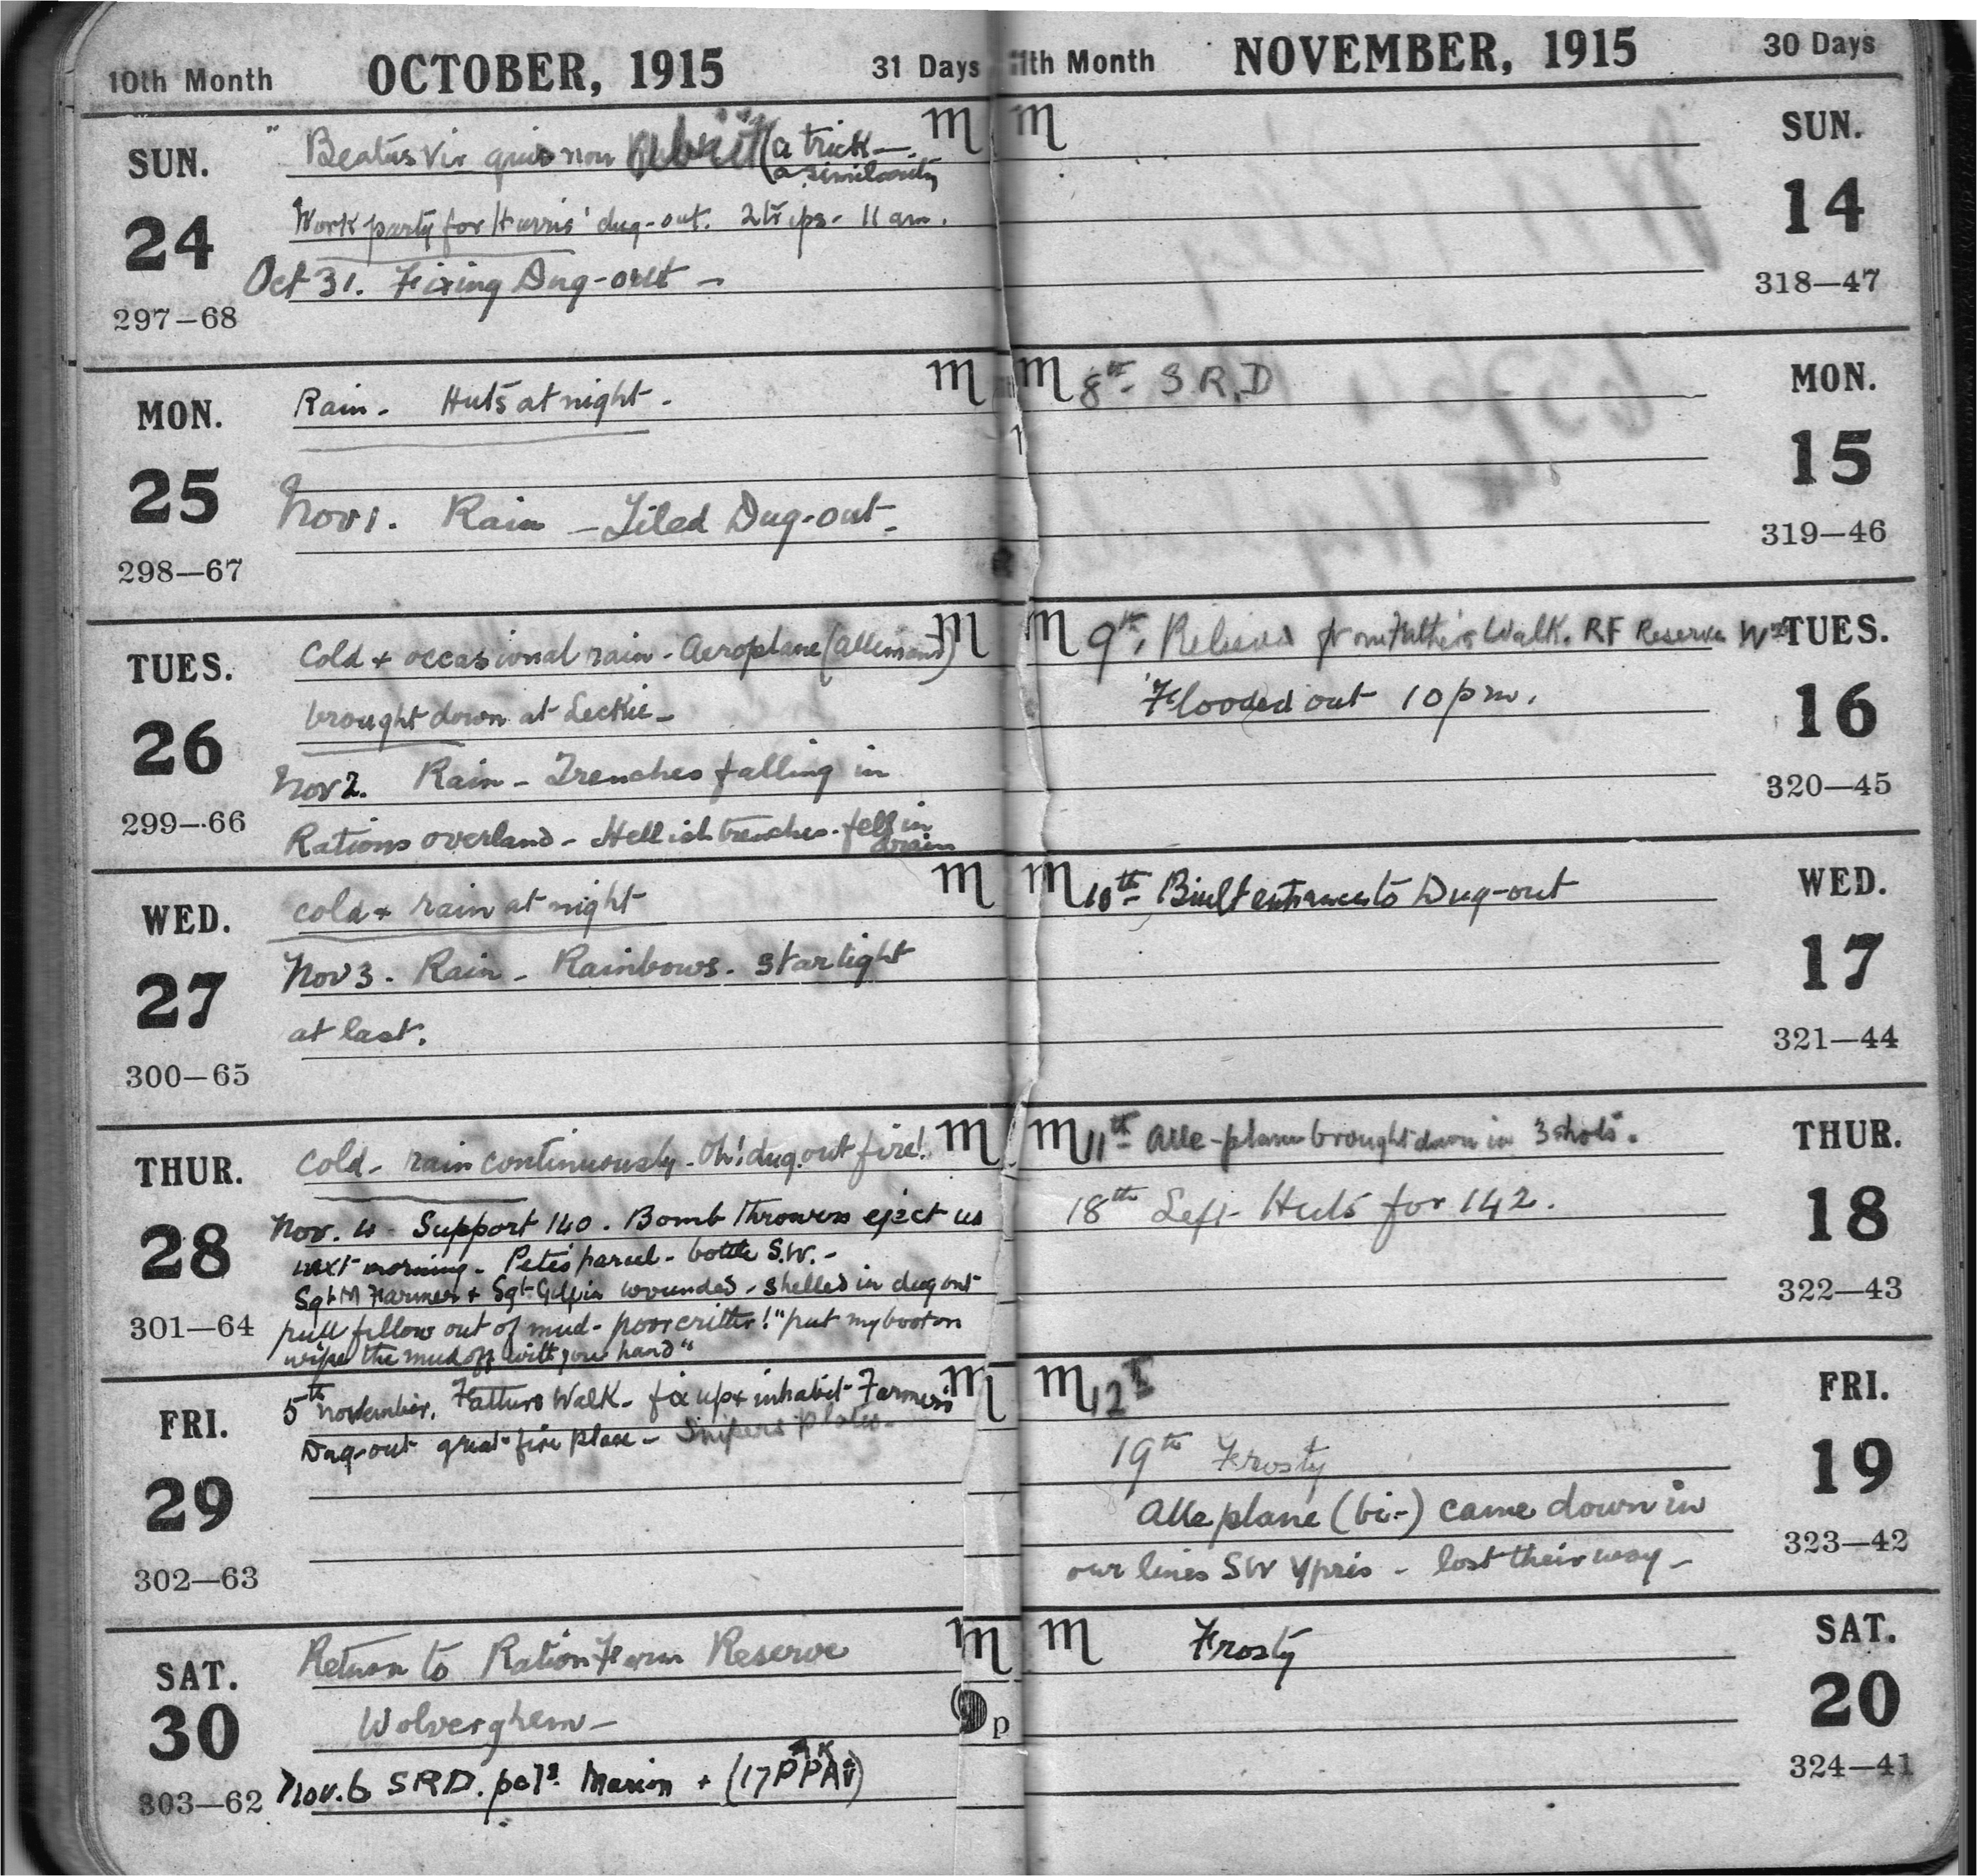 10th Month OCTOBER, 1915 31 Days
SUN.
24
297–68
" Beatus Vir quis non (a trick—.
a similarity
Work party for Harris' dug-out. 2 trips - 11 am.
Oct 31. Fixing Dug-out –
MON.
25
298–67
Rain - Huts at night.
Nov 1. Rain – Tiled Dug-out -
TUES.
26
299–66
Cold + occasional rain - Aeroplane (allemand)
brought down at Leckie –
Nov 2. Rain – Trenches falling in
Rations overland – Hellish trenches. fell in
drain
WED.
27
300–65
cold + rain at night
Nov 3. Rain – Rainbows. Starlight
at last.
THUR.
28
301–64
Cold - rain continuously - Oh! dug.out fire!
Nov. 4 - Support 140. Bomb Throwers eject us
next morning - Pete's parcel - bottle S.W. -
Sgt M Farmer + Sgt Gilpin wounded - shelled in dug out
pull fellow out of mud - poor critter! "put my boot on
wipe the mud off with your hand"
FRI.
29
302–63
5th November. Fatturs Walk - fix up + inhabit Farmers
Dug-out great fire place – Snipers plates -
SAT.
30
303–62
Return to Ration Farm Reserve
Wolverghem –
p
Nov. 6 SRD. Marion + (17
11th Month NOVEMBER, 1915 30 Days
SUN.
14
318–47
MON.
15
319–46
8th - S.R.D
TUES.
16
320–45
9th. Relieved from Walk. RF Reserve
Flooded out 10 pm.
WED.
17
321–44
10th - Built entrance to Dug-out
THUR.
18
322–43
11th - Alle-plane brought down in 3 shots.
18th Left Huts for 142.
FRI.
19
323–42
12th
19th Frosty
Alle plane (bi-) came down in
our lines SW Ypres - lost their way –
SAT.
20
324–41
Frosty